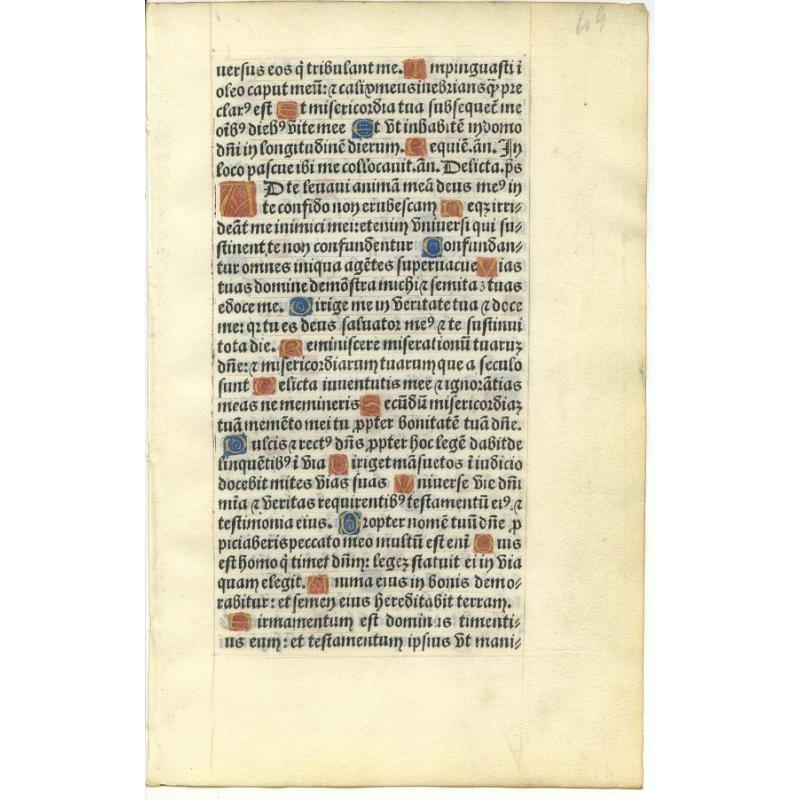 uersus eos q̄ tribulant me. Impinguasti ī
oleo caput meū: ⁊ calix meus inebrians q̄ȝ pre
clarꝰ est Et misericordia tua subsequet̄ me
oībꝰ diebꝰ vite mee Et vt inhabitē in domo
dn̄i in longitudinē dierum. Requiē. an̄. In
loco pascue ibi me collocauit. an̄. Delicta. p̄s
AD te leuaui animā meā deus meꝰ in
te confido non erubescam Neqȝ irri⸗
deāt me inimici mei: etenim vniuersi qui su⸗
stinent te non confundentur Confundan⸗
tur omnes iniqua agētes superuacue Vias
tuas domine demōstra michi ⁊ semitaȝ tuas
edoce me. Dirige me in veritate tua ⁊ doce
me: qꝛ tu es deus saluator meꝰ ⁊ te sustinui
tota die. Reminiscere miserationū tuaruȝ
dn̄e: ⁊ misericordiarum tuarum que a seculo
sunt Delicta iuuentutis mee ⁊ ignorātias
meas ne memineris Secūdū misericordiaȝ
tuā memēto mei tu ꝓpter bonitatē tuā dn̄e.
Dulcis ⁊ rectꝰ dn̄s ꝓpter hoc legē dabit de
linquētibꝰ ī via Diriget māsuetos ī iudicio
docebit mites vias suas Vniuerse vie dn̄i
mīa ⁊ veritas requirentibꝰ testamentū eiꝰ ⁊
testimonia eius. Propter nomē tuū dn̄e ꝓ
piciaberis peccato meo multū est enī Quis
est homo q̄ timet dn̄m: legeȝ statuit ei in via
quam elegit. Anima eius in bonis demo⸗
rabitur: et semen eius hereditabit terram.
Firmamentum est dominus timenti⸗
us eum: et testamentum ipsius vt mani⸗